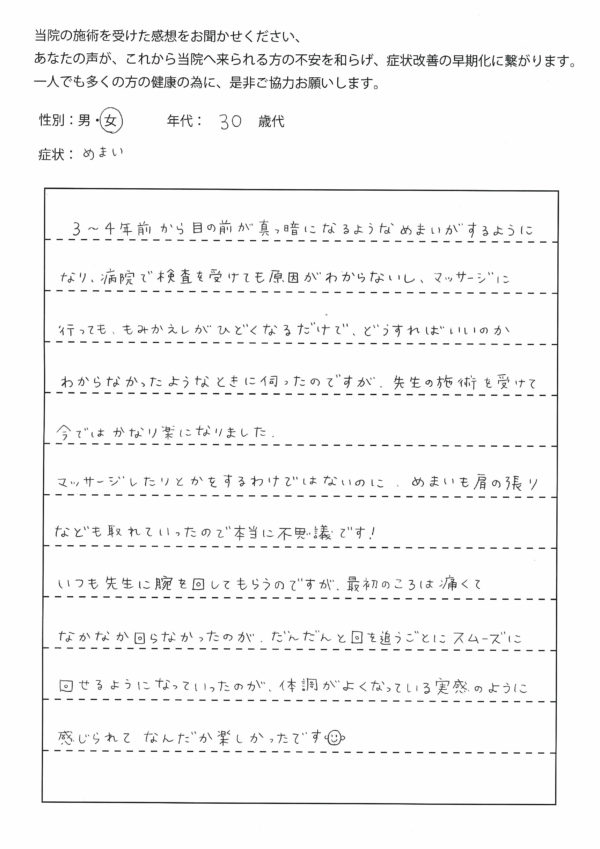 当院の施術を受けた感想をお聞かせください、
あなたの声が、これから当院へ来られる方の不安を和らげ、症状改善の早期化に繋がります。
一人でも多くの方の健康の為に、是非ご協力お願いします。
性別：男・女 年代： 30 歳代
症状： めまい
3〜4年前から目の前が真っ暗になるようなめまいがするように
なり、病院で検査を受けても原因がわからないし、マッサージに
行っても、もみかえしがひどくなるだけで、どうすればいいのか
わからなかったようなときに伺ったのですが、先生の施術を受けて
今ではかなり楽になりました。
マッサージしたりとかをするわけではないのに、めまいも肩の張り
なども取れていったので本当に不思議です!
いつも先生に腕を回してもらうのですが、最初のころは痛くて
なかなか回らなかったのが、だんだんと回を追うごとにスムーズに
回せるようになっていったのが、体調がよくなっている実感のように
感じられて なんだか楽しかったです☺